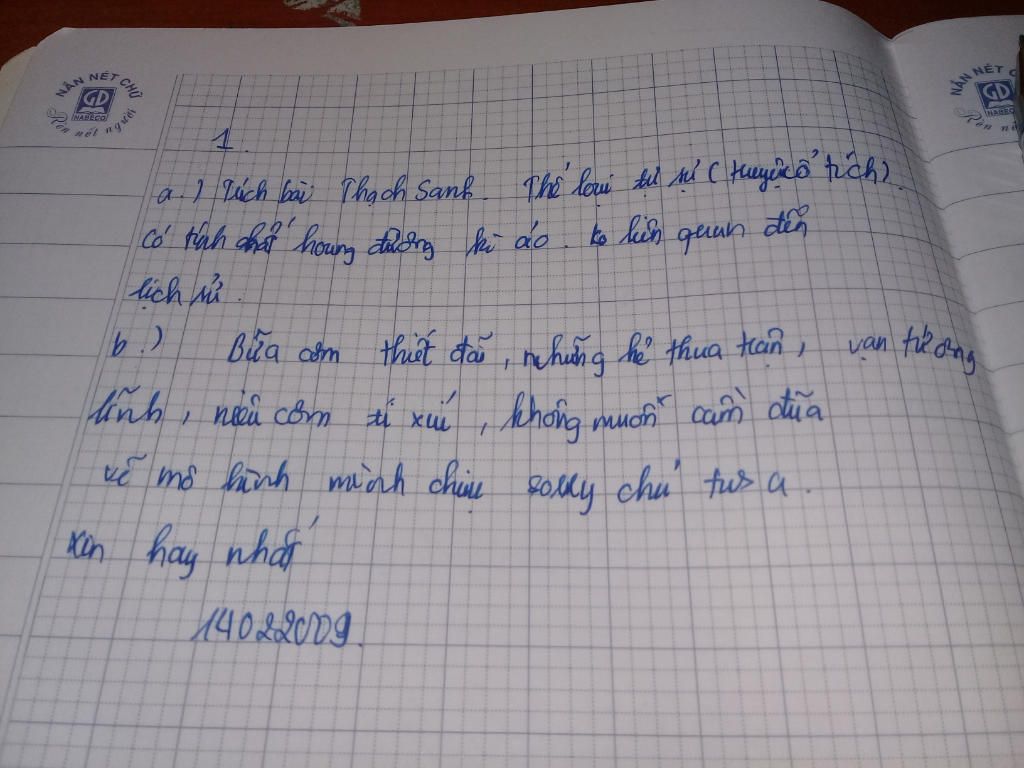 NẮN NÉT CHỮ
GD
NABECO
Rèn nét người
NẮN NÉT CHỮ
GD
NABECO
Rèn nét
1.
a.) Trích bài Thạch Sanh. Thể loại tự sự (truyện cổ tích).
Có tính chất hoang đường kì ảo. ko liên quan đến
lịch sử.
b.) Bữa cơm thiết đãi, những kẻ thua trận, vạn tướng
lĩnh, niêu cơm tí xíu, không muốn cầm đũa
vẽ mô hình mình chịu sorry chủ tus ạ.
xin hay nhất
14022009.